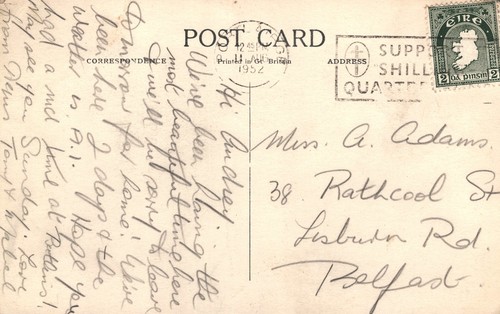 POST CARD
CORRESPONDENCE
Printed in Gt. Britain
ADDRESS
1952
SUPPO
SHILL
QUARTE
EIRE
2
2
Hi Audrey
We've been having the
most beautiful time here
I will be sorry to leave
Tomorrow for home! We've
been here 2 days & the
weather is A.1. Hope you
had a nice time at Butlins!
May see you Sunday. Love
From Denis Tony &
Miss. A. Adams.
38. Rathcool St
Lisburn Rd.
Belfast.